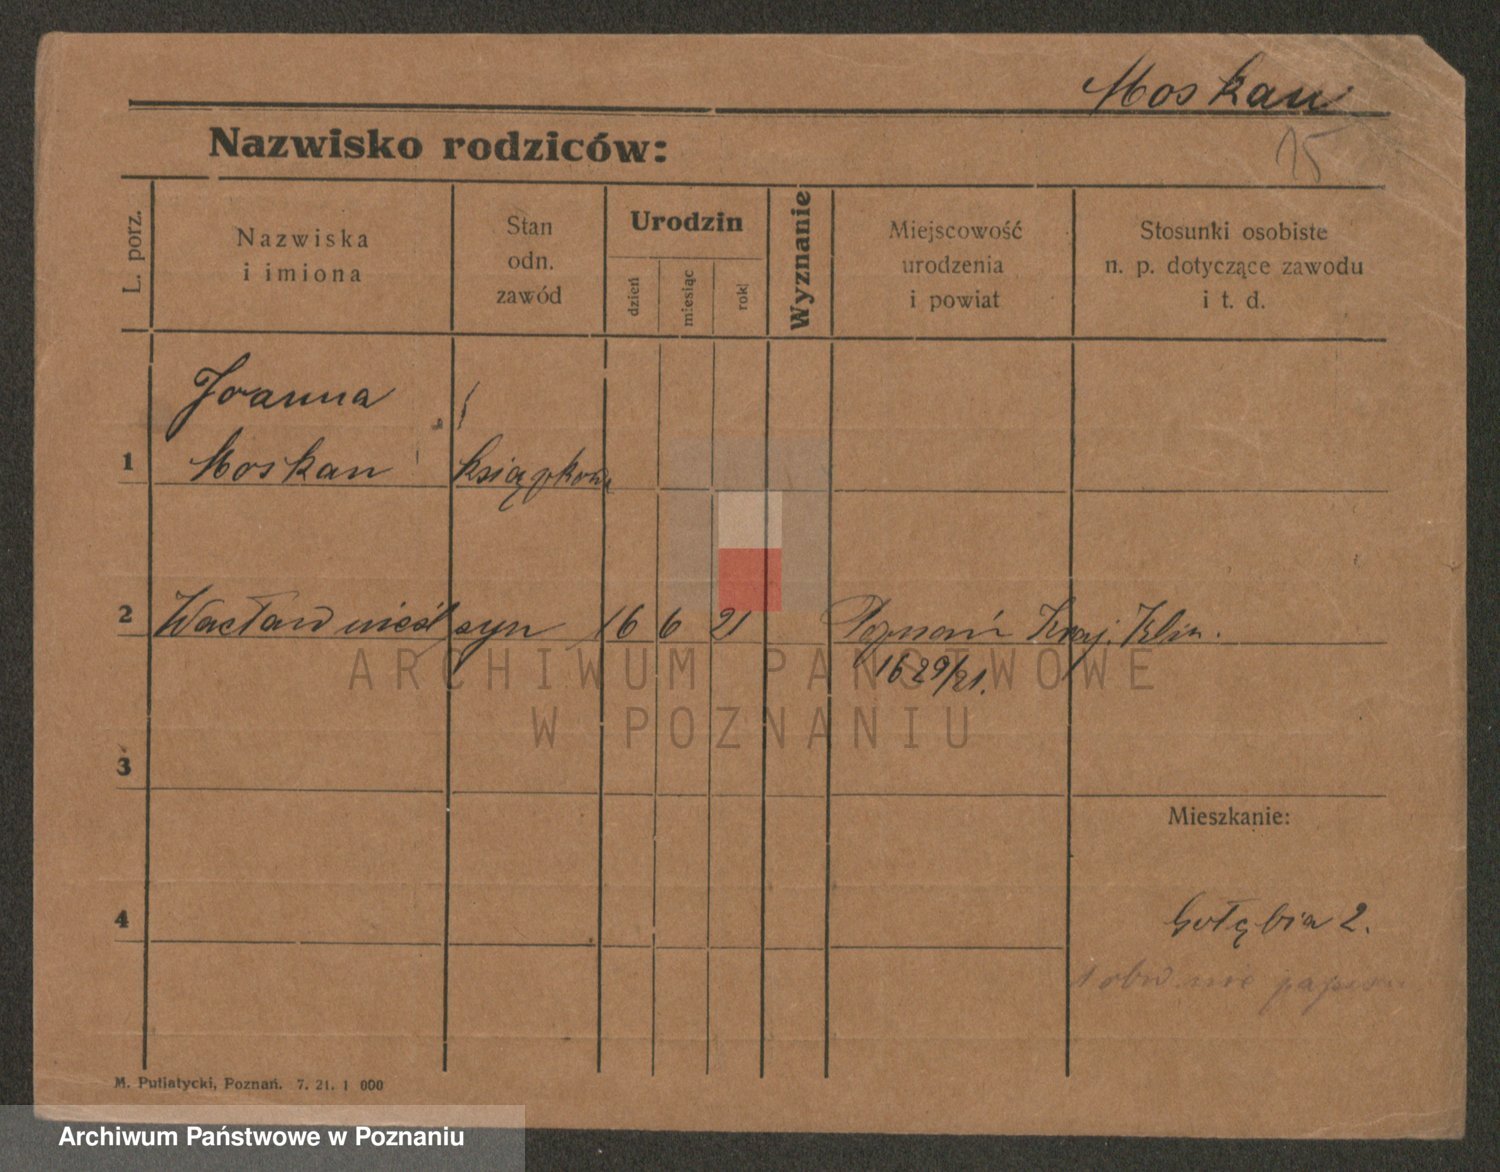 Moskau
15
Nazwisko rodziców:
L. porz.
Nazwiska
i imiona
Stan
odn.
zawód
Urodzin
dzień
miesiąc
rok
Wyznanie
Miejscowość
urodzenia
i powiat
Stosunki osobiste
n. p. dotyczące zawodu
i t. d.
Joanna
1 Moskau książkowa
2 Wacław nieśl syn 16 6 21 Poznań Kraj. Klin.
1629/21.
3
Mieszkanie:
4
Gołębia 2.
nie
M. Putiatycki, Poznań. 7. 21. 1 000
ARCHIWUM PAŃSTWOWE
W POZNANIU
Archiwum Państwowe w Poznaniu